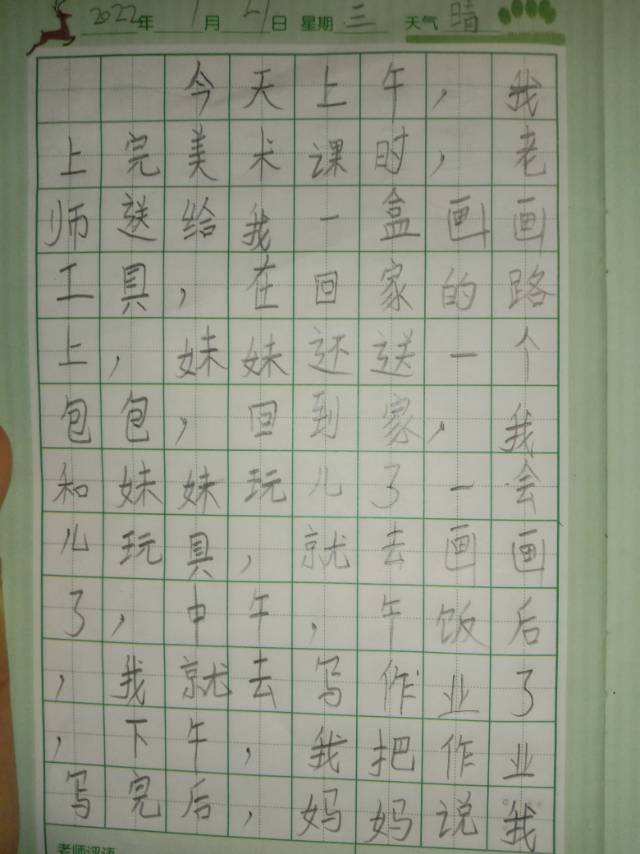 2022年1月21日 星期三 天气晴
今天上午，我
上完美术课时，老
师送给我一盒画画
工具，在回家的路
上，妹妹还送一个
包包，回到家，我
和妹妹玩儿了一会
儿玩具，就去画画
了，中午，午饭后
，我就去写作业了
，下午，我把作业
写完后，妈妈说我
老师评语